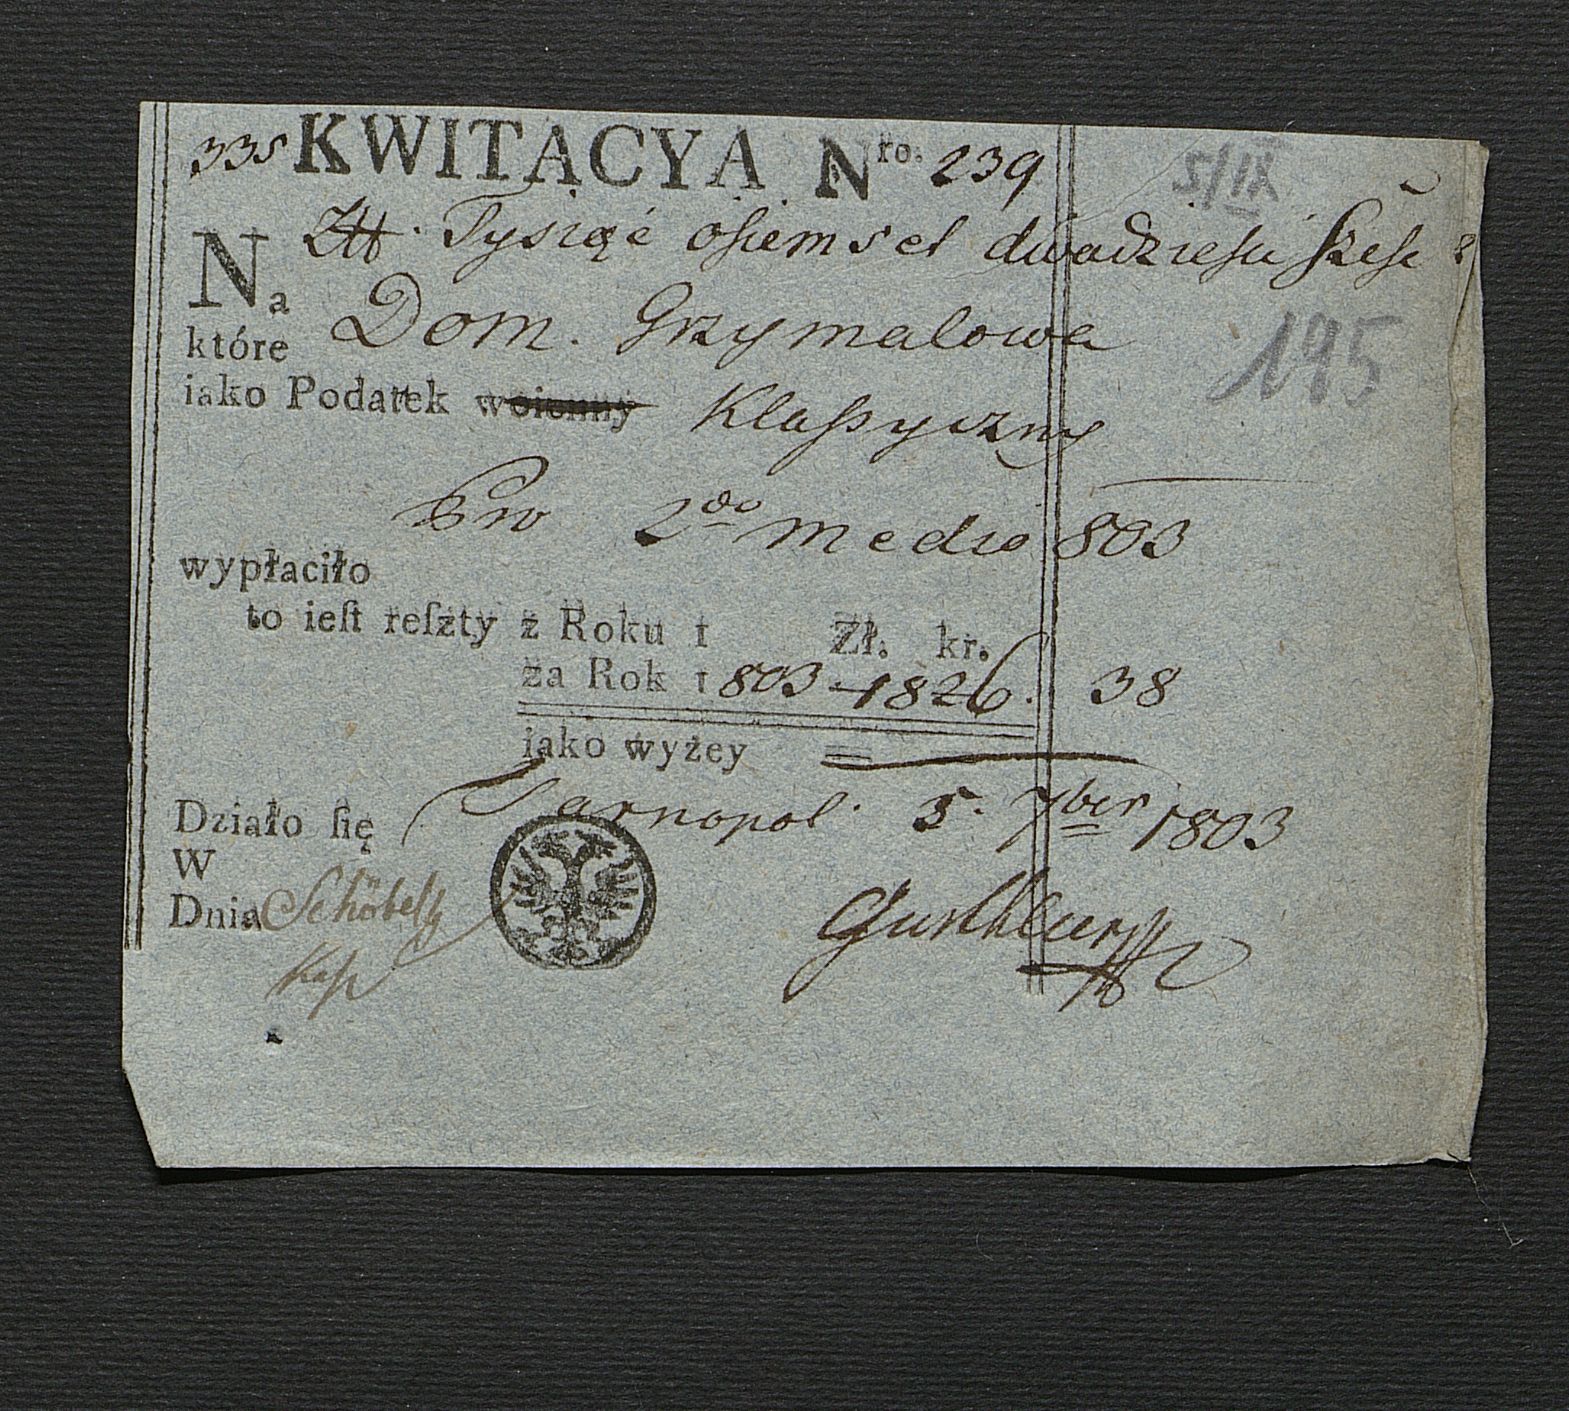 335 KWITACYA Nro. 239
5/IX
Na Tysiąć ośiemset dwadzieścia sześć
które Dom. Grzymalowa
195
iako Podatek woienny Klassyczny
Pro 2do Medio 803
wypłaciło
to iest reſzty z Roku 1 Zł. kr.
za Rok 1803 1826. 38
jako wyżey
Działo ſię Tarnopol. 5. 7ber 1803
W
Dnia Schöbel